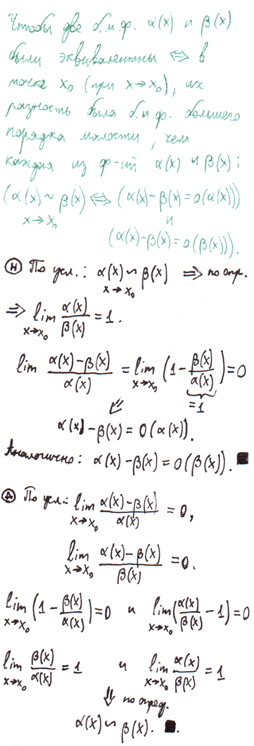 Чтобы две б.м.ф. α(x) и β(x)
были эквивалентны ⇔ в
точке x₀ (при x→x₀), их
разность была б.м.ф. большего
порядка малости, чем
каждая из ф-ий α(x) и β(x):
(α(x) ~ β(x) ⇔ (α(x)-β(x)=o(α(x)))
x→x₀ и
(α(x)-β(x)=o(β(x))).
Ⓗ По усл.: α(x) ~ β(x) ⇒ по опр.
x→x₀
⇒ lim_{x→x₀} α(x)/β(x) = 1.
lim (α(x)-β(x))/α(x) = lim_{x→x₀} (1 - β(x)/α(x)) = 0
=1
⇓
α(x)-β(x)=o(α(x)).
Аналогично: α(x)-β(x)=o(β(x)). ■
Ⓓ По усл.: lim_{x→x₀} (α(x)-β(x))/α(x) = 0,
lim_{x→x₀} (α(x)-β(x))/β(x) = 0.
lim_{x→x₀} (1 - β(x)/α(x)) = 0 и lim_{x→x₀} (α(x)/β(x) - 1) = 0
lim_{x→x₀} β(x)/α(x) = 1 и lim_{x→x₀} α(x)/β(x) = 1
⇓ по опред.
α(x) ~ β(x). ■.